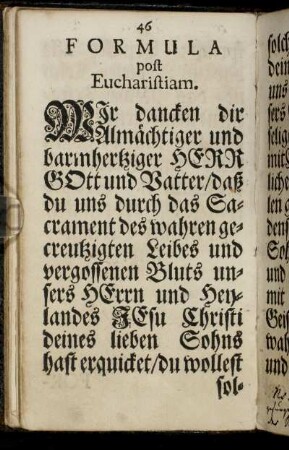 46
FORMULA
post
Eucharistiam.
WIr dancken dir
Allmächtiger und
barmhertziger HERR
GOtt und Vatter/daß
du uns durch das Sa-
crament des wahren ge-
creutzigten Leibes und
vergossenen Bluts un-
sers HErrn und Hey-
landes JEsu Christi
deines lieben Sohns
hast erquicket/du wollest
sol-
solch
dein
uns
sers
selig
mit
liche
len
dens
Soh
und
mit
Geis
wah
und